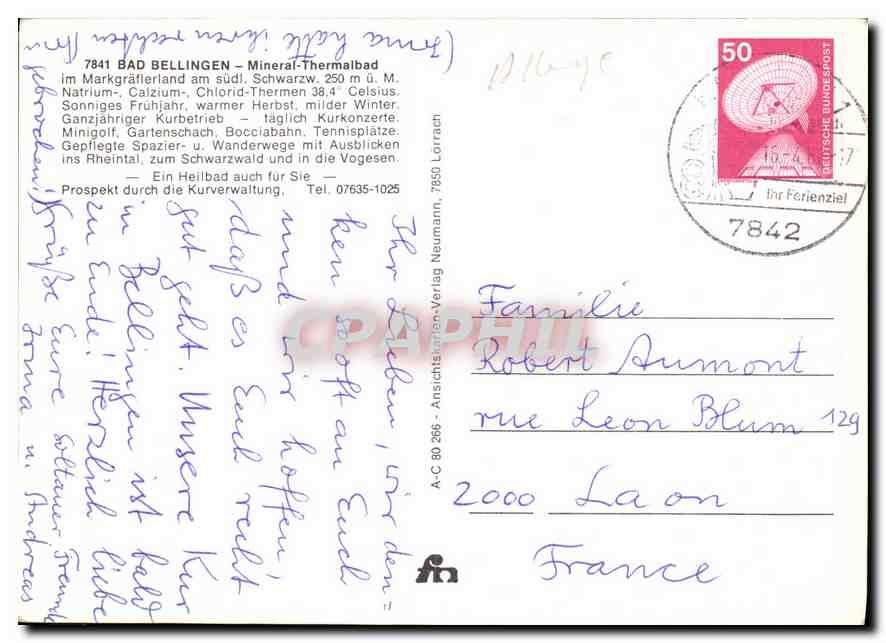 7841 BAD BELLINGEN – Mineral-Thermalbad
im Markgräflerland am südl. Schwarzw. 250 m ü. M.
Natrium-, Calzium-, Chlorid-Thermen 38,4° Celsius.
Sonniges Frühjahr, warmer Herbst, milder Winter.
Ganzjähriger Kurbetrieb – täglich Kurkonzerte.
Minigolf, Gartenschach, Bocciabahn, Tennisplätze.
Gepflegte Spazier- u. Wanderwege mit Ausblicken
ins Rheintal, zum Schwarzwald und in die Vogesen.
— Ein Heilbad auch für Sie —
Prospekt durch die Kurverwaltung, Tel. 07635-1025
Ihr Lieben, wir den-
ken so oft an Euch
und wir hoffen,
daß es Euch recht
gut geht. Unsere Kur
in Bellingen ist bald
zu Ende! Herzlich liebe
Grüße Eure Soltauer Freunde
Irma u. Andreas
(Irma hatte ihren rechten
gebrochen!)
A-C 80 266 - Ansichtskarten-Verlag Neumann, 7850 Lörrach
50
DEUTSCHE BUNDESPOST
Ihr Ferienziel
7842
Familie
Robert Aumont
rue Leon Blum 129
2000 Laon
France
fm
CPAPHIL